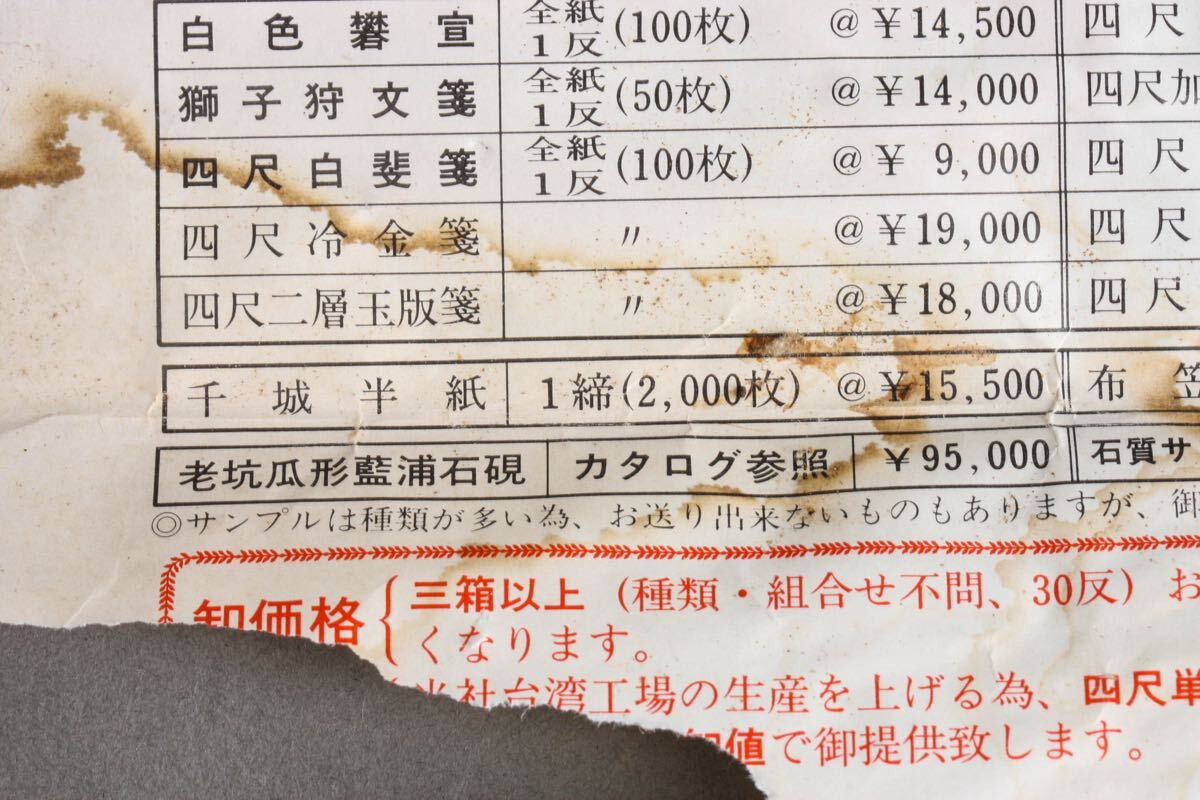 白色礬宣 全紙1反(100枚) @¥14,500 四尺
獅子狩文箋 全紙1反(50枚) @¥14,000 四尺加
四尺白斐箋 全紙1反(100枚) @¥ 9,000 四尺
四尺冷金箋 〃 @¥19,000 四尺
四尺二層玉版箋 〃 @¥18,000 四尺
千城半紙 1締(2,000枚) @¥15,500 布笠
老坑瓜形藍浦石硯 カタログ参照 ¥95,000 石質サ
◎サンプルは種類が多い為、お送り出来ないものもありますが、御
卸価格 三箱以上(種類・組合せ不問、30反)お
くなります。
当社台湾工場の生産を上げる為、四尺単
卸値で御提供致します。